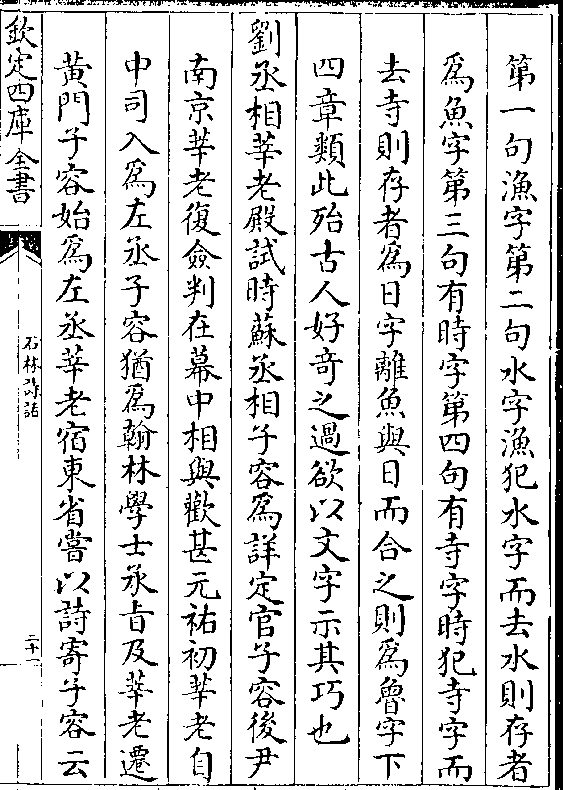 第一句漁字第二句水字漁犯水字而去水則存者
爲魚字第三句有時字第四句有寺字時犯寺字而
去寺則存者爲日字離魚與日而合之則爲魯字下
四章類此殆古人好奇之過欲以文字示其巧也
劉丞相莘老殿試時蘇丞相子容爲詳定官子容後尹
南京莘老復僉判在幕中相與歡甚元祐初莘老自
中司入爲左丞子容猶爲翰林學士承旨及莘老遷
黃門子容始爲左丞莘老宿東省嘗以詩寄子容云
欽定四庫全書
石林詩話
二十一